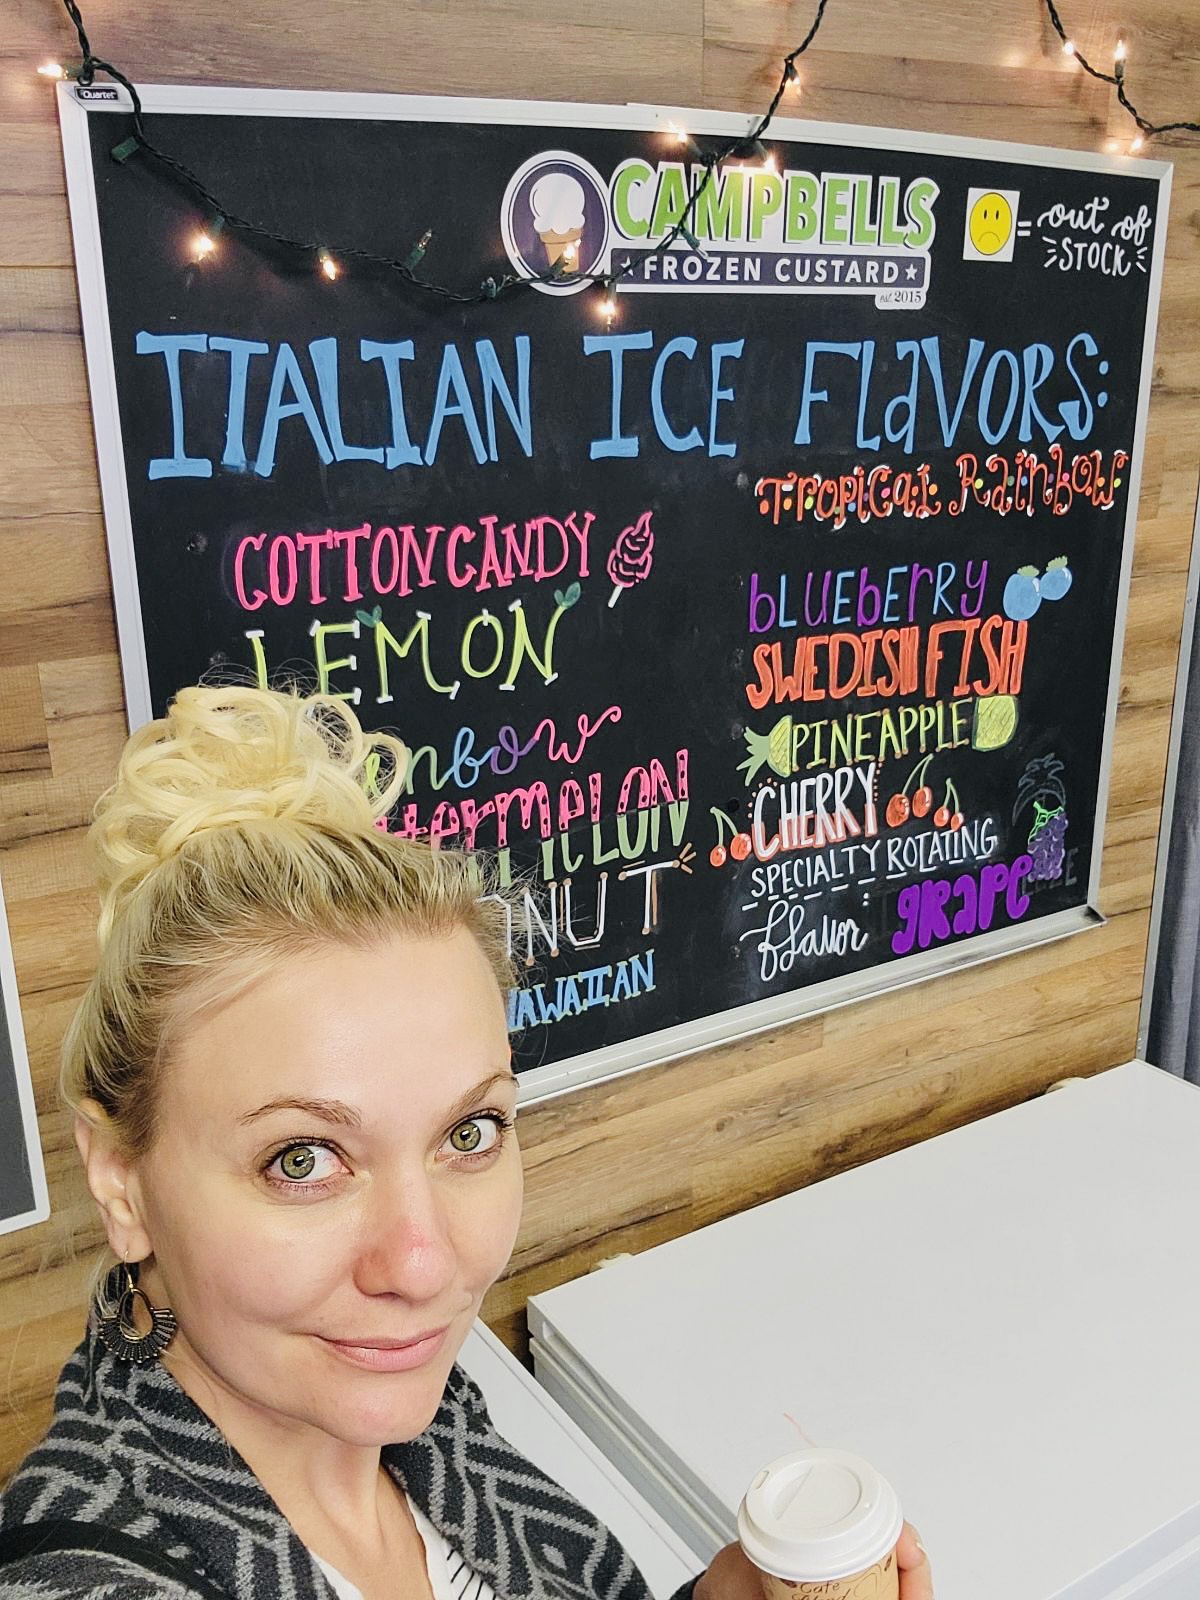 Quartet
CAMPBELLS
FROZEN CUSTARD
est. 2015
= out of
STOCK
ITALIAN ICE FLaVORS:
Tropical Rainbow
COTTON CANDY
LEMON
nbow
termeLON
NUT
HAWAIIAN
bLUEbERRy
SWEDISH FISH
PINEAPPLE
CHERRY
SPECIALTY ROTATING
flavor: gRape
Cafe